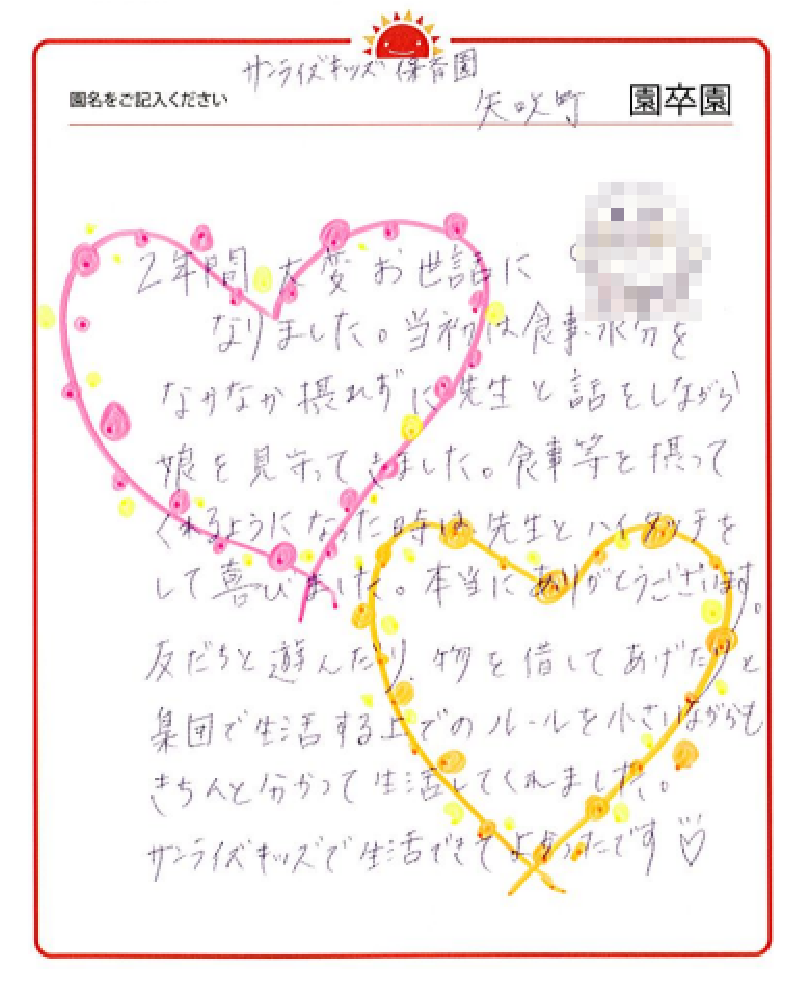 サンライズキッズ保育園
園名をご記入ください 矢吹町 園卒園
2年間大変お世話に
なりました。当初は食事、水分を
なかなか摂れずに先生と話をしながら
娘を見守ってきました。食事等を摂って
くれるようになった時は先生とハイタッチを
して喜びました。本当にありがとうございます。
友だちと遊んだり、物を借してあげたりと
集団で生活する上でのルールを小さいながらも
きちんと分かって生活してくれました。
サンライズキッズで生活できてよかったです♡